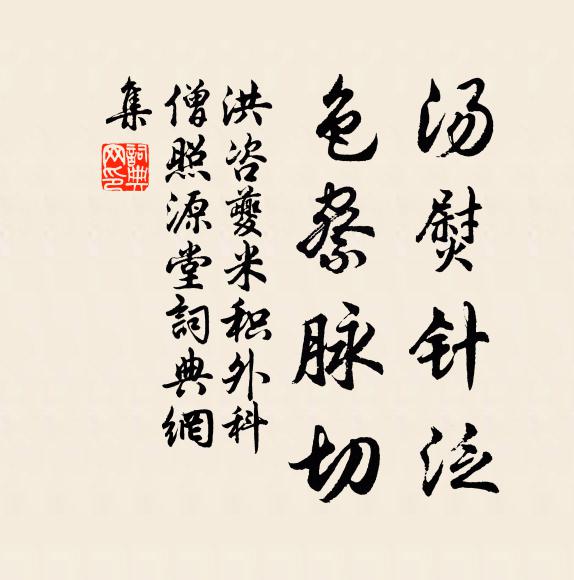 汤熨针泛
色察脉切
洪咨夔米积外科
僧照源堂詞典網
集
詞典
网印